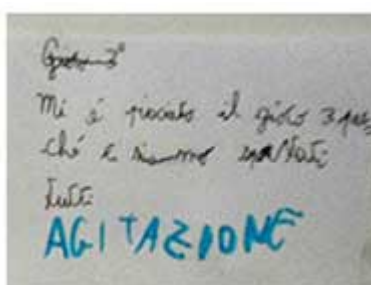 Gioco 3°
Mi é piaciuto il gioco 3 per
ché ci siamo
tutti
AGITAZIONE